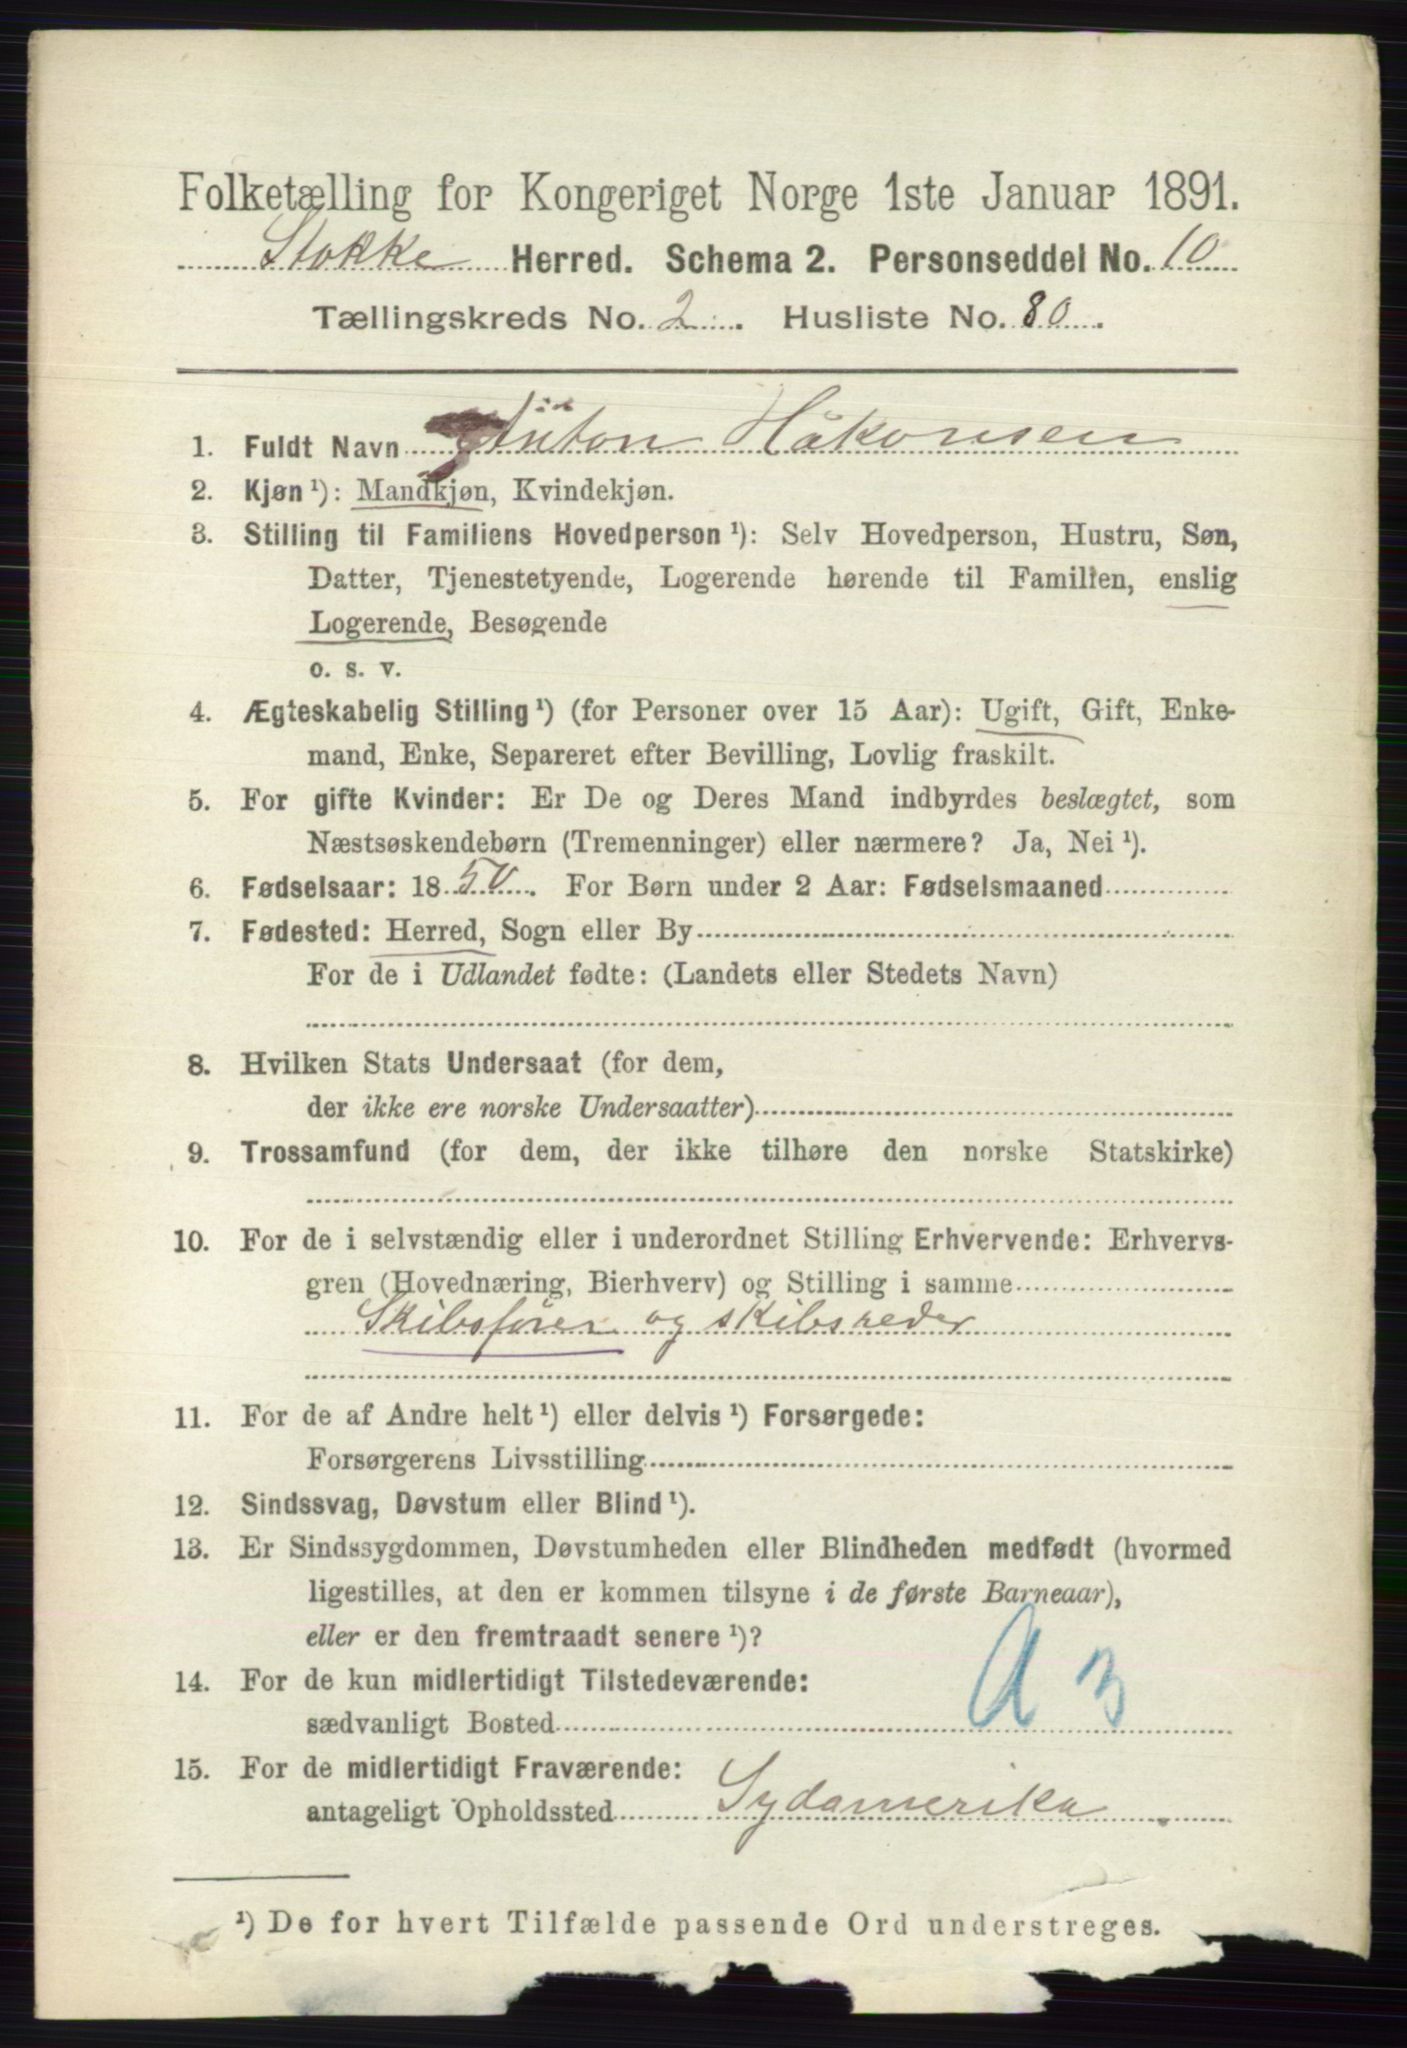 Folketælling for Kongeriget Norge 1ste Januar 1891.
Stokke Herred. Schema 2. Personseddel No. 10
Tællingskreds No. 2. Husliste No. 80.
1. Fuldt Navn Anton Håkonsen
2. Kjøn ¹): Mandkjøn, Kvindekjøn.
3. Stilling til Familiens Hovedperson ¹): Selv Hovedperson, Hustru, Søn,
Datter, Tjenestetyende, Logerende hørende til Familien, enslig
Logerende, Besøgende
o. s. v.
4. Ægteskabelig Stilling ¹) (for Personer over 15 Aar): Ugift, Gift, Enke-
mand, Enke, Separeret efter Bevilling, Lovlig fraskilt.
5. For gifte Kvinder: Er De og Deres Mand indbyrdes beslægtet, som
Næstsøskendebørn (Tremenninger) eller nærmere? Ja, Nei ¹).
6. Fødselsaar: 1850. For Børn under 2 Aar: Fødselsmaaned
7. Fødested: Herred, Sogn eller By
For de i Udlandet fødte: (Landets eller Stedets Navn)
8. Hvilken Stats Undersaat (for dem,
der ikke ere norske Undersaatter)
9. Trossamfund (for dem, der ikke tilhøre den norske Statskirke)
10. For de i selvstændig eller i underordnet Stilling Erhvervende: Erhvervs-
gren (Hovednæring, Bierhverv) og Stilling i samme
Skibsfører og skibsreder
11. For de af Andre helt ¹) eller delvis ¹) Forsørgede:
Forsørgerens Livsstilling
12. Sindssvag, Døvstum eller Blind ¹).
13. Er Sindssygdommen, Døvstumheden eller Blindheden medfødt (hvormed
ligestilles, at den er kommen tilsyne i de første Barneaar),
eller er den fremtraadt senere ¹)?
14. For de kun midlertidigt Tilstedeværende:
sædvanligt Bosted
A 3
15. For de midlertidigt Fraværende:
antageligt Opholdssted Sydamerika.
¹) De for hvert Tilfælde passende Ord understreges.